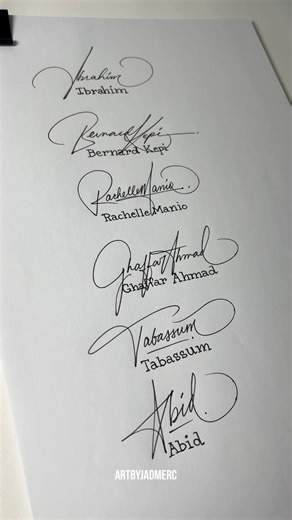 Ibrahim
Ibrahim
Bernard Kepi
Bernard Kepi
Rachelle Manio
Rachelle Manio
Ghaffar Ahmad
Ghaffar Ahmad
Tabassum
Tabassum
Abid
Abid
ARTBYJADMERC